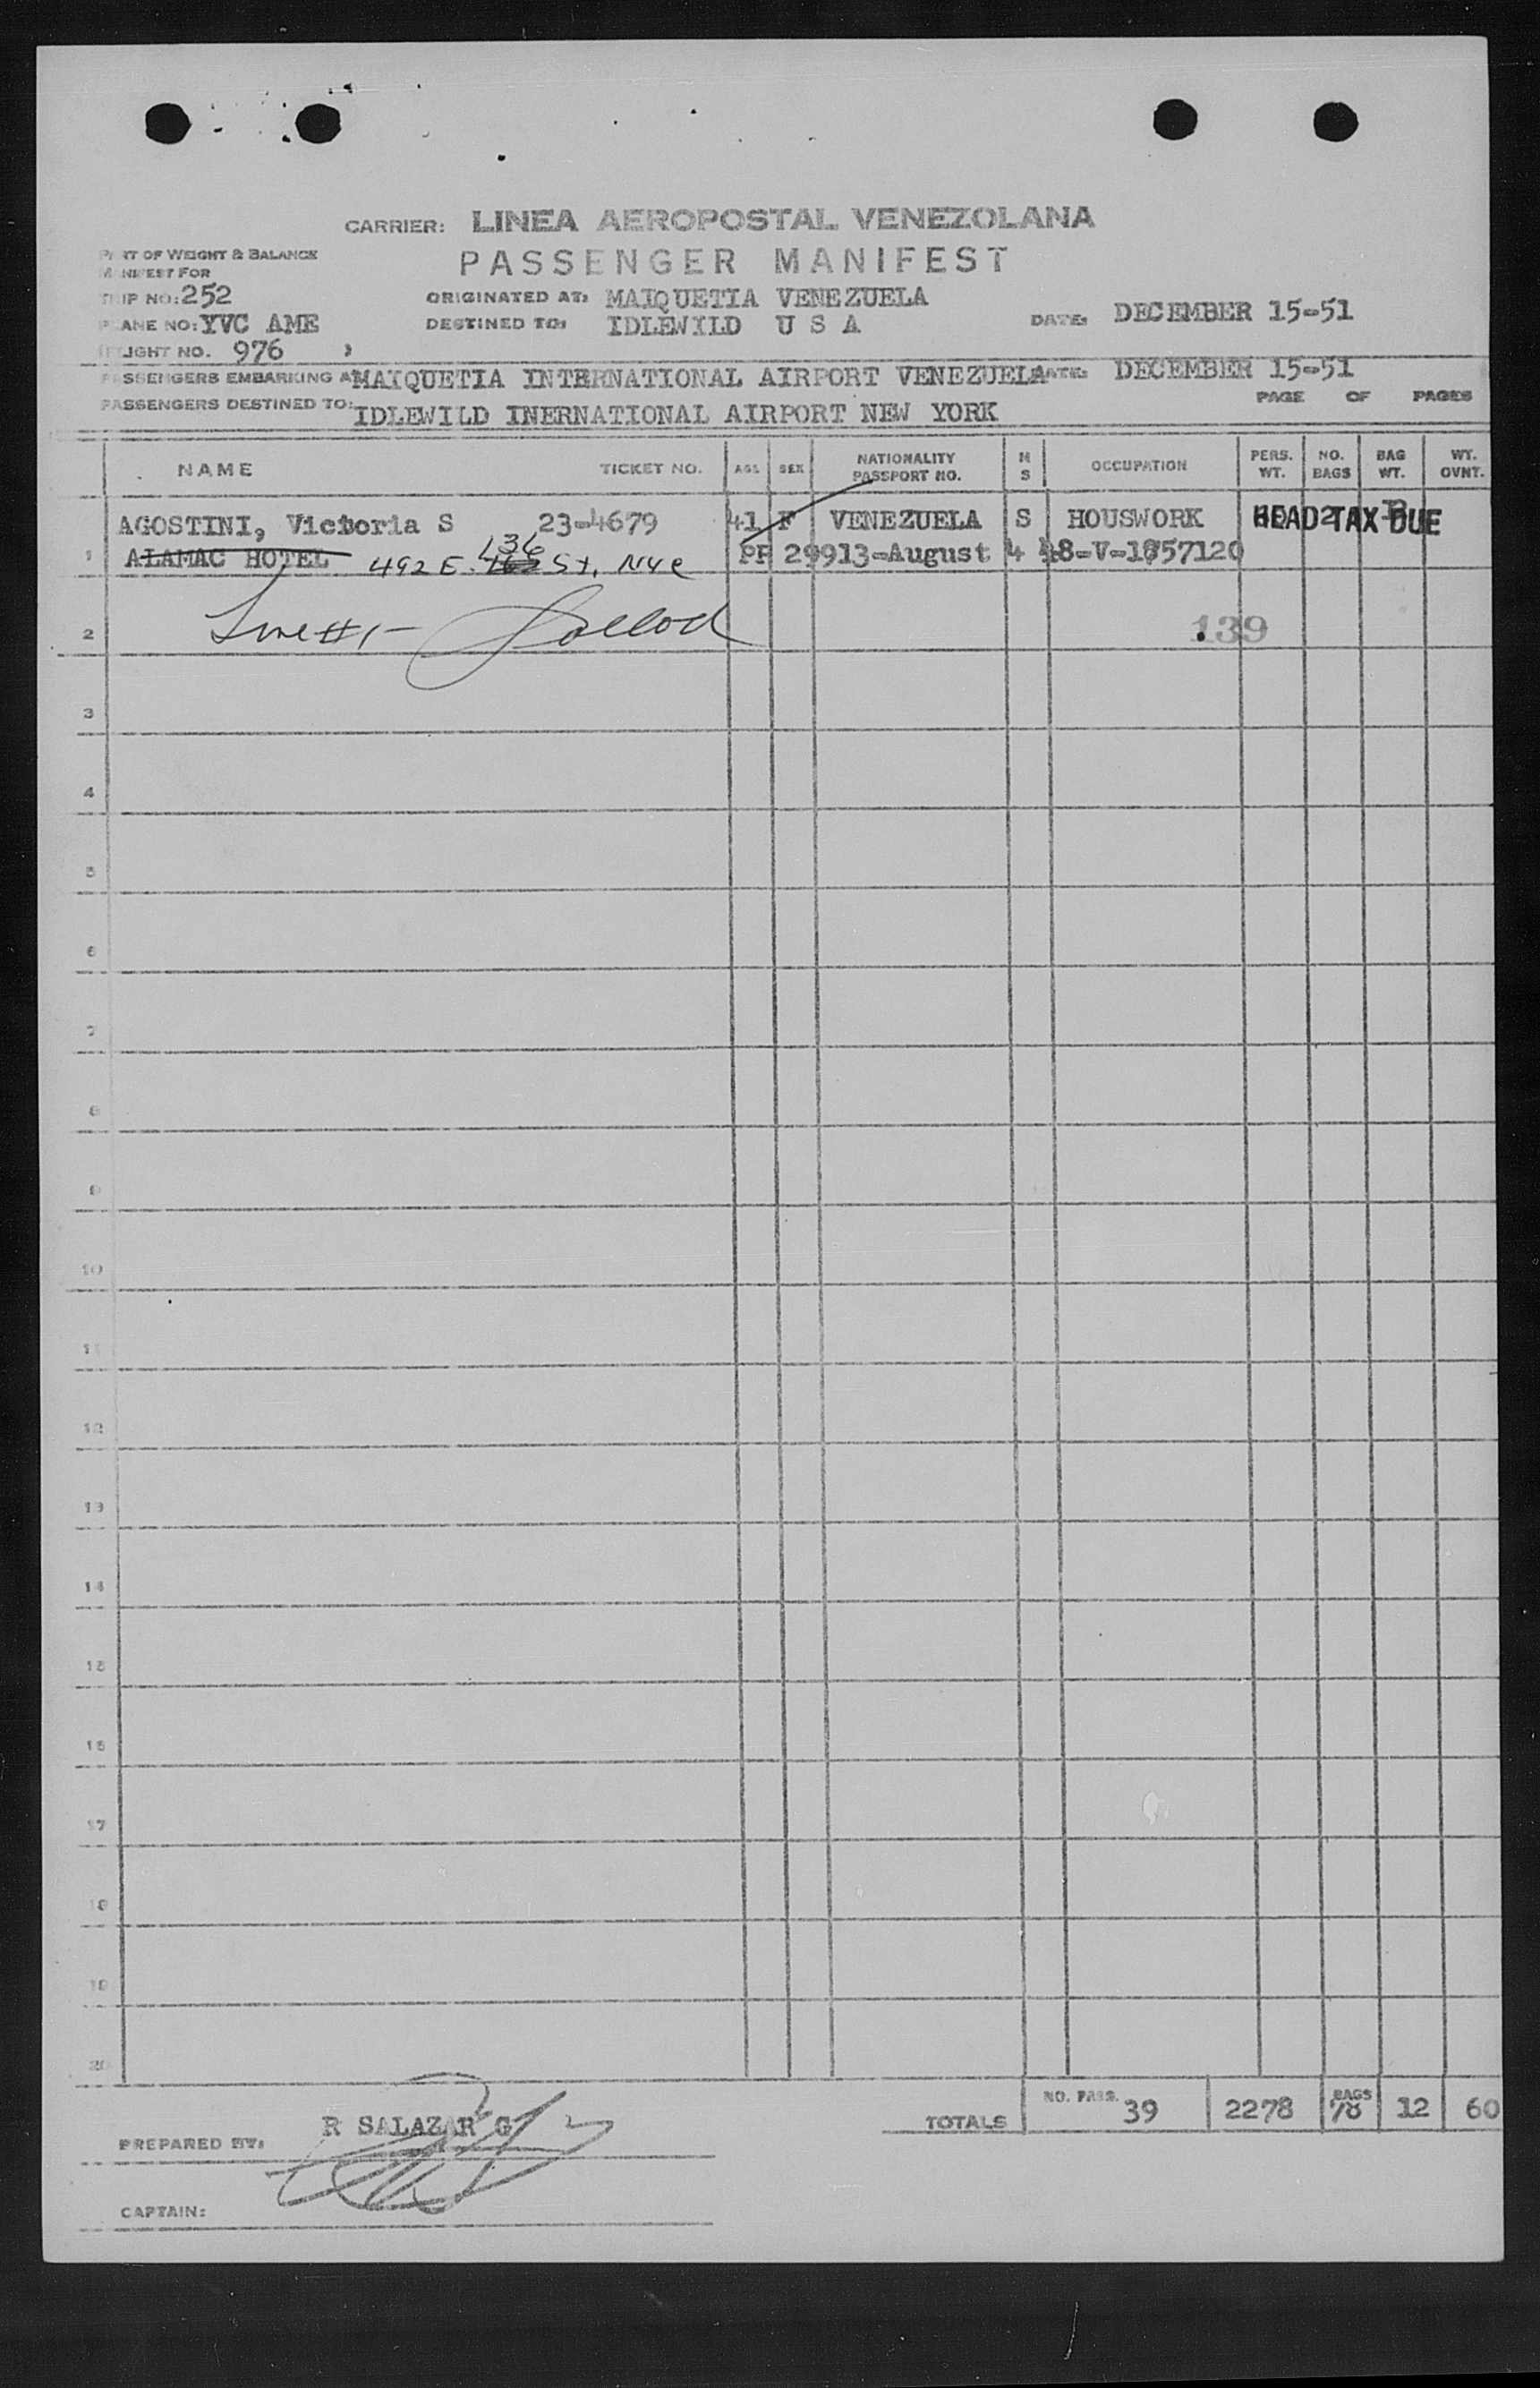 CARRIER: LINEA AEROPOSTAL VENEZOLANA
PART OF WEIGHT & BALANCE
MANIFEST FOR
PASSENGER MANIFEST
TRIP NO: 252
ORIGINATED AT: MAIQUETIA VENEZUELA
PLANE NO: YVC AME
DESTINED TO: IDLEWILD U S A
DATE: DECEMBER 15-51
(FLIGHT NO. 976 )
PASSENGERS EMBARKING AT MAIQUETIA INTERNATIONAL AIRPORT VENEZUELA DATE: DECEMBER 15-51
PASSENGERS DESTINED TO: IDLEWILD INERNATIONAL AIRPORT NEW YORK
PAGE OF PAGES
NAME TICKET NO. AGE SEX NATIONALITY PASSPORT NO. M S OCCUPATION PERS. WT. NO. BAGS BAG WT. WT. OVNT.
AGOSTINI, Victoria S 23-4679 41 F VENEZUELA S HOUSWORK HEAD TAX DUE
1 ALAMAC HOTEL 492 E. 136 St, NYC PP 29913-August 4 48-V-1857120
2 139
3
4
5
6
7
8
9
10
11
12
13
14
15
16
17
18
19
20
TOTALS NO. PASS. 39 2278 BAGS 78 12 60
PREPARED BY: R SALAZAR G
CAPTAIN: